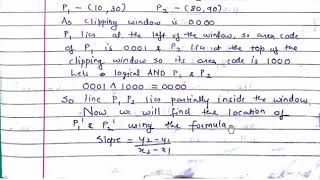 P₁ - (10,30) P₂ - (80,90)
As clipping window is 0000
P₁ lies at the left of the window, so area code
of P₁ is 0001 & P₂ lies at the top of the
clipping window so its area code is 1000
Lets a logical AND P₁ & P₂
0001 ∧ 1000 = 0000
So line P₁ P₂ lies partially inside the window.
Now we will find the location of
P₁' & P₂' using the formula
Slope = y₂-y₁
x₂-x₁